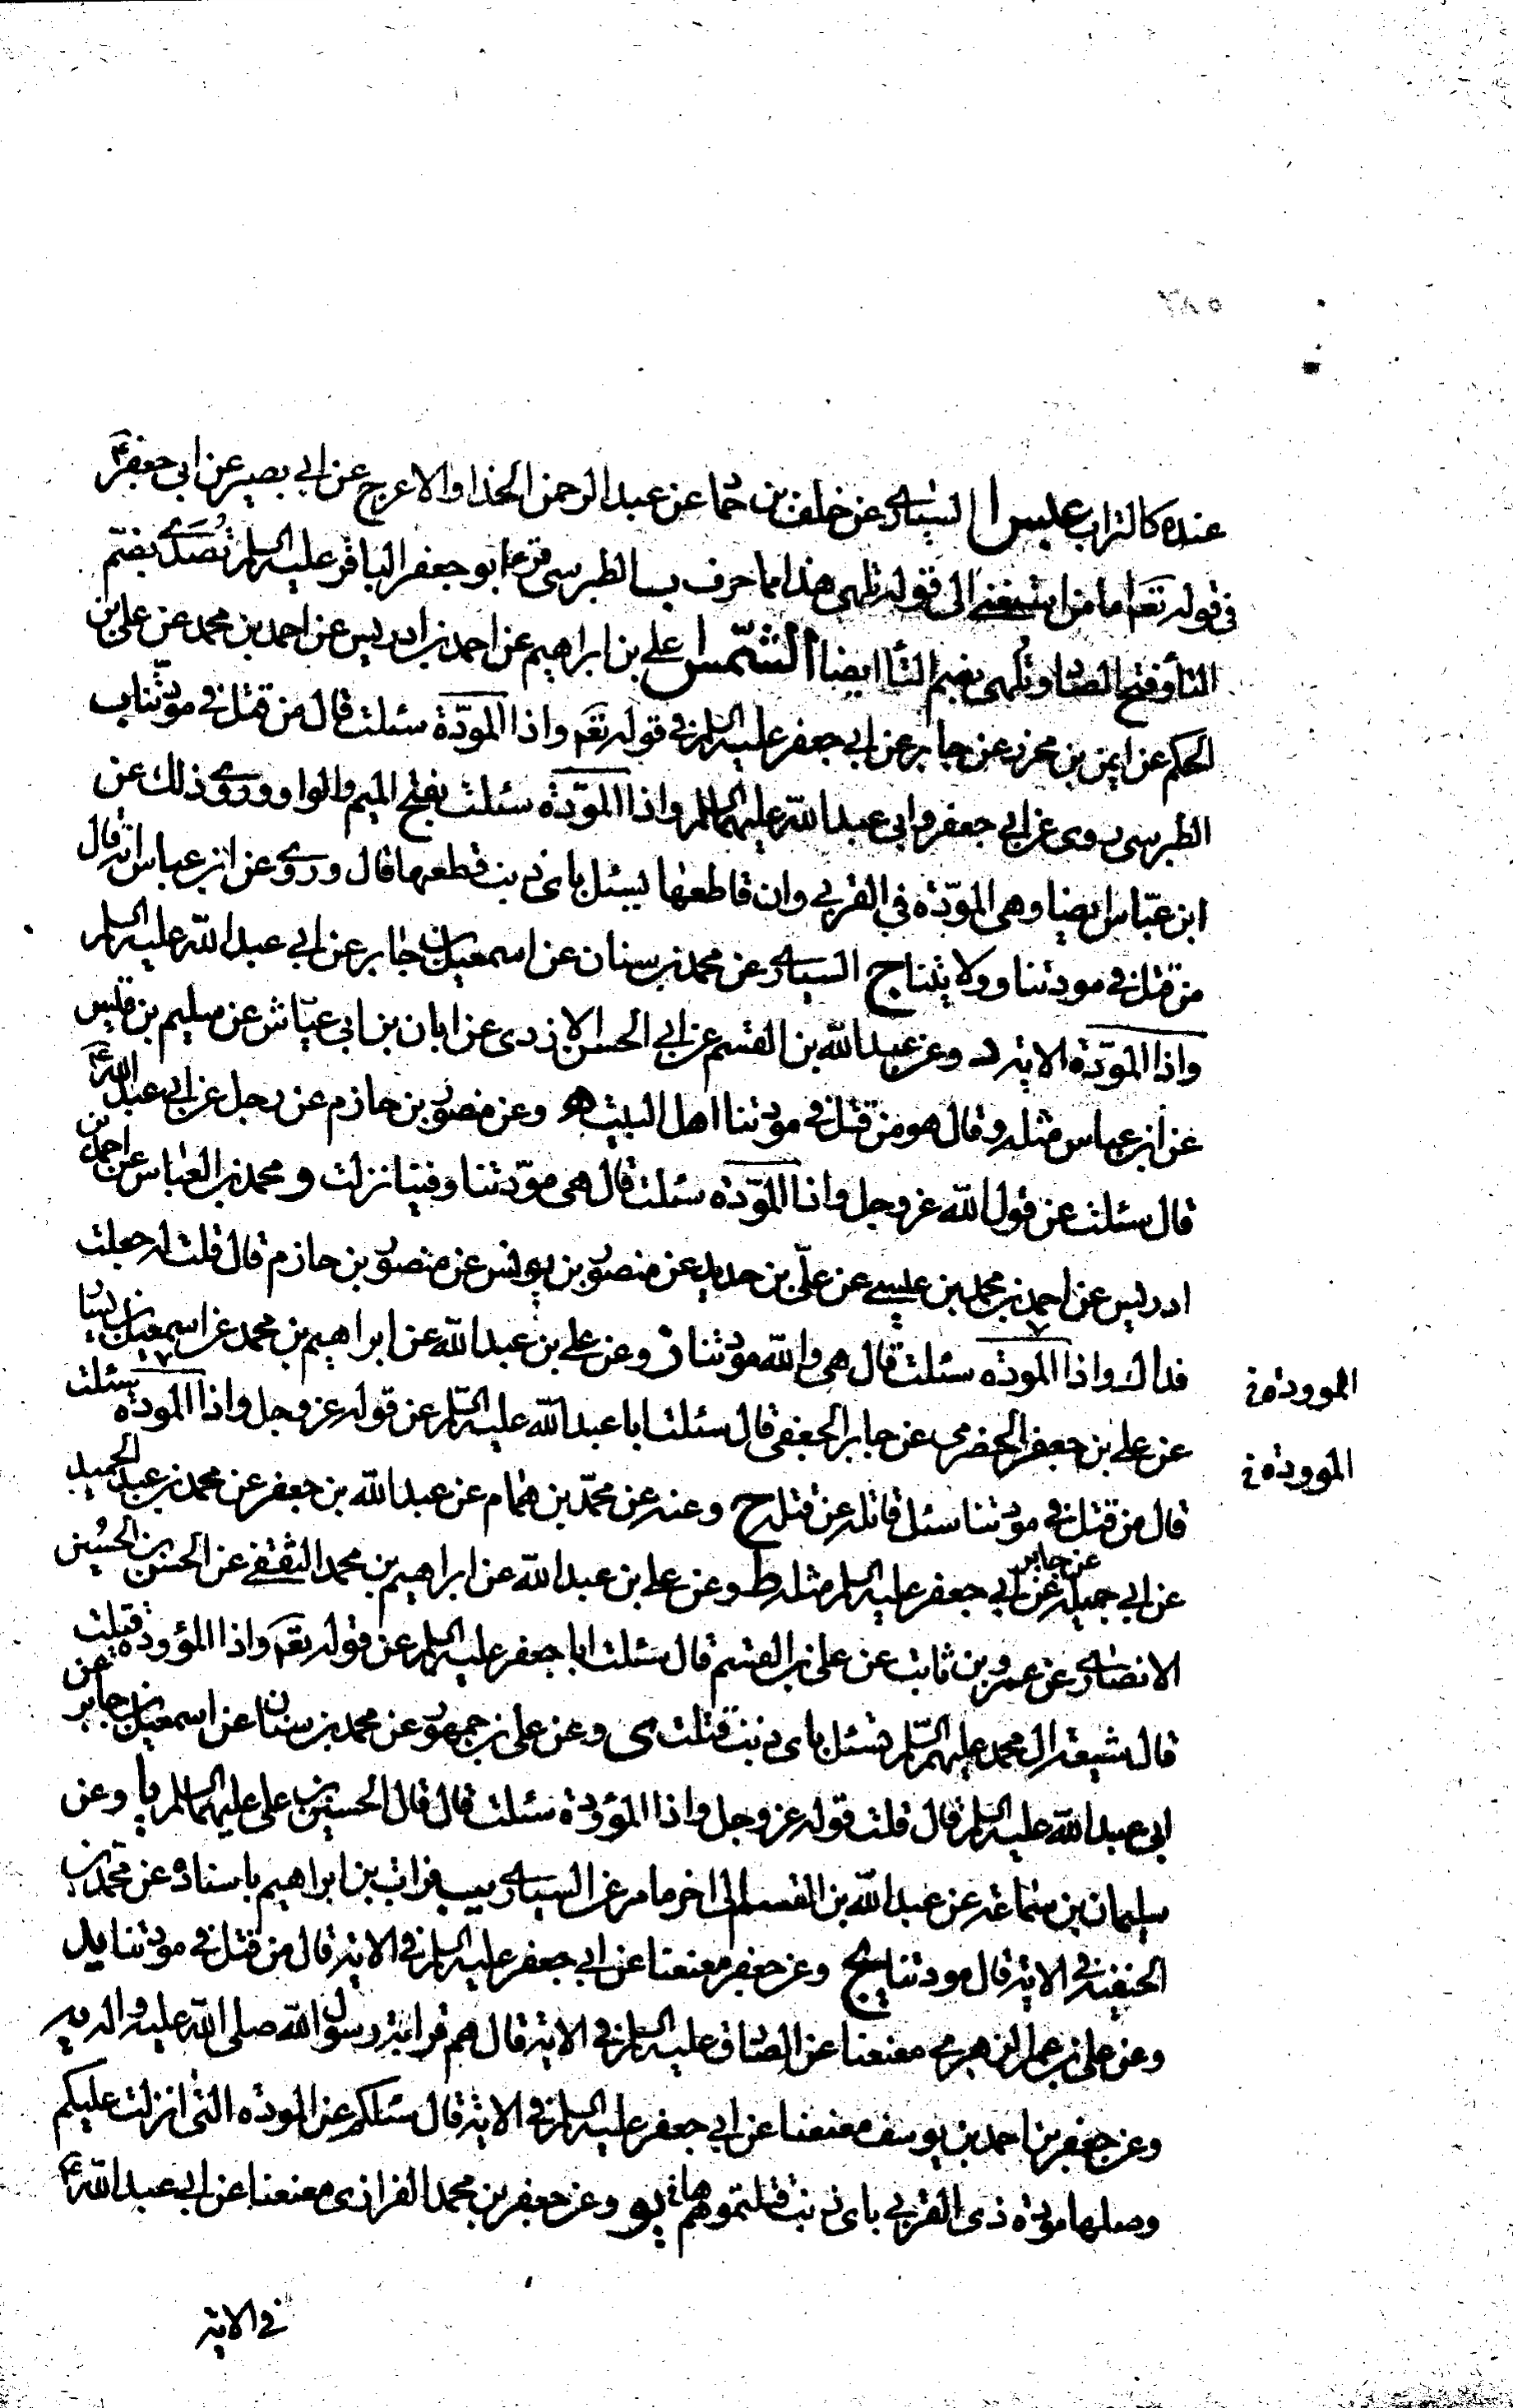 ٢٨٥
عنده كالتراب عبس ا السياري عن خلف بن حماد عن عبد الرحمن الحذاء والاعرج عن ابي بصير عن ابي جعفر ع
في قوله تعم اما من استغنى الى قوله تلهى هذا مما حرف ب الطبرسي قرء ابو جعفر الباقر عليه السلم تُصَدّى بضم
التاء وفتح الصاد وتُلهى بضم التاء ايضا الشمس ا علي بن ابراهيم عن احمد بن ادريس عن احمد بن محمد عن علي بن
الحكم عن ايمن بن محرز عن جابر عن ابي جعفر عليه السلم في قوله تعم واذا المودّة سئلت قال من قتل في مودّتنا ب
الطبرسي روى عن ابي جعفر وابي عبد الله عليهما السلم واذا المودّة سئلت بفتح الميم والواو وروى ذلك عن
ابن عبّاس ايضا وهي المودّة في القربى وان قاطعها يسئل باى ذنب قطعها قال وروى عن ابن عباس انه قال
من قتل في مودتنا وولايتنا ج السياري عن محمد بن سنان عن اسمعيل بن جابر عن ابي عبد الله عليه السلم
واذا المودّة الاية د وعن عبد الله بن القسم عن ابي الحسن الازدى عن ابان بن ابي عيّاش عن سليم بن قيس
عن ابن عباس مثله وقال هو من قتل في مودتنا اهل البيت ه وعن منصور بن حازم عن رجل عن ابي عبد الله ع
قال سئلت عن قول الله عز وجل واذا المودّة سئلت قال هي مودّتنا وفينا نزلت و محمد بن العباس عن احمد بن
ادريس عن احمد بن محمد بن عيسى عن علي بن حديد عن منصور بن يونس عن منصور بن حازم قال قلت له جعلت
فداك واذا المودة سئلت قال هي والله مودتنا ز وعن علي بن عبد الله عن ابراهيم بن محمد عن اسمعيل بن يسار
الموودة خ
عن علي بن جعفر الحضرمي عن جابر الجعفى قال سئلت ابا عبد الله عليه السلم عن قوله عز وجل واذا المودة سئلت
الموودة خ
قال من قتل في مودتنا سئل قاتله عن قتله ح وعنه عن محمّد بن همام عن عبد الله بن جعفر عن محمد بن عبد الحميد
عن ابي جميلة عن جابر عن ابي جعفر عليه السلم مثله ط وعن علي بن عبد الله عن ابراهيم بن محمد الثقفي عن الحسن بن الحسين
الانصارى عن عمرو بن ثابت عن علي بن القسم قال سئلت ابا جعفر عليه السلم عن قوله تعم واذا المؤودة قتلت
قال شيعة آل محمد عليهم السّلم تسئل باى ذنب قتلت ى وعن علي بن جمهور عن محمد بن سنان عن اسمعيل بن جابر عن
ابي عبد الله عليه السلم قال قلت قوله عز وجل واذا المؤودة سئلت قال قال الحسين بن علي عليهما السلم يا وعن
سليمان بن سماعة عن عبد الله بن القسم الى اخر ما مر عن السياري يب فرات بن ابراهيم باسناده عن محمد بن
الحنفية في الاية قال مودتنا يج وعن جعفر معنعنا عن ابي جعفر عليه السلم في الاية قال من قتل في مودتنا يد
وعن علي بن عمر الزهري معنعنا عن الصادق عليه السلم في الاية قال هم قرابة رسول الله صلى الله عليه واله يه
وعن جعفر بن احمد بن يوسف معنعنا عن ابي جعفر عليه السلم في الاية قال سئلكم عن المودة التى انزلت عليكم
وصلها مودّة ذى القربى باى ذنب قتلتموهم يو وعن جعفر بن محمد الفزازى معنعنا عن ابي عبد الله ع
في الاية